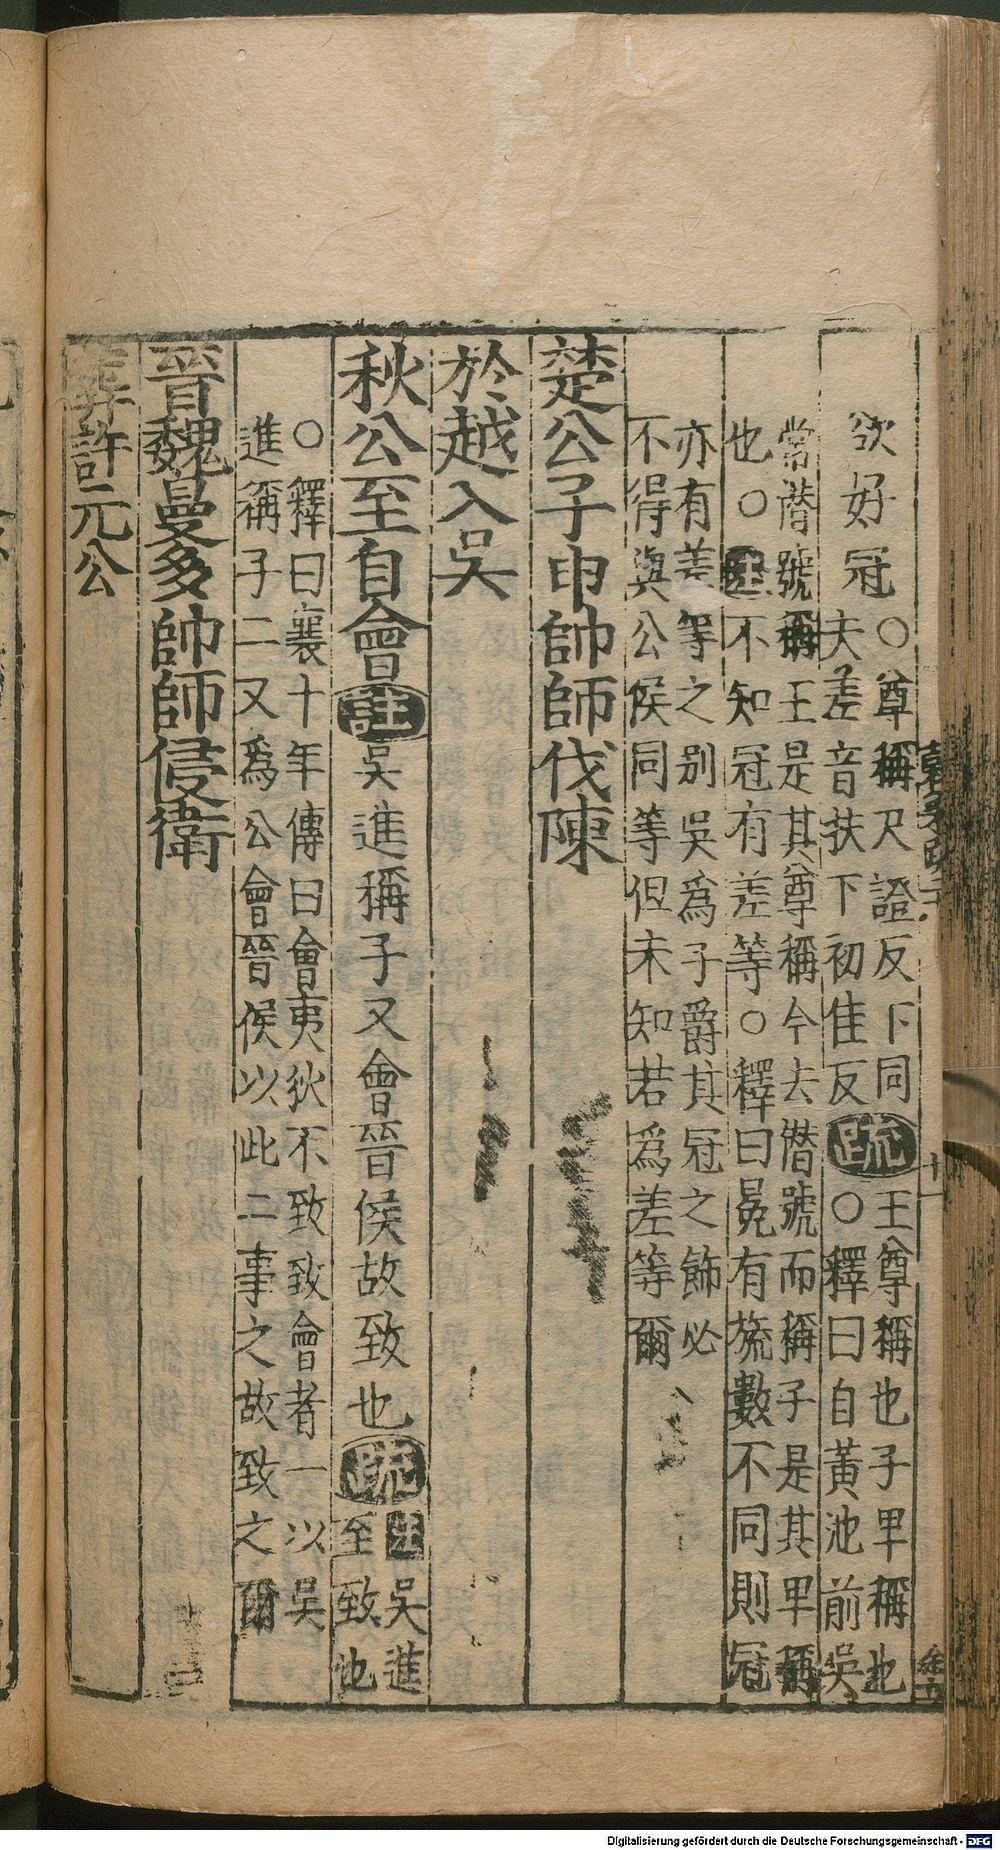 欲好冠
○尊稱尺證反下同
夫差音扶下初隹反
疏
王尊稱也子卑稱也
○釋曰自黃池前吳
常僣號稱王是其尊稱今去僣號而稱子是其卑稱
也○註不知冠有差等○釋曰冕有旒數不同則冠
亦有差等之别吳爲子爵其冠之飾必
不得與公侯同等但未知若爲差等爾
楚公子申帥師伐陳
於越入吳
秋公至自會註吳進稱子又會晉侯故致也疏
註吳進
至致也
○釋曰襄十年傳曰會夷狄不致致會者一以吳
進稱子二又爲公會晉侯以此二事之故致之爾
晉魏曼多帥師侵衛
葬許元公
十一
Digitalisierung gefördert durch die Deutsche Forschungsgemeinschaft - DFG